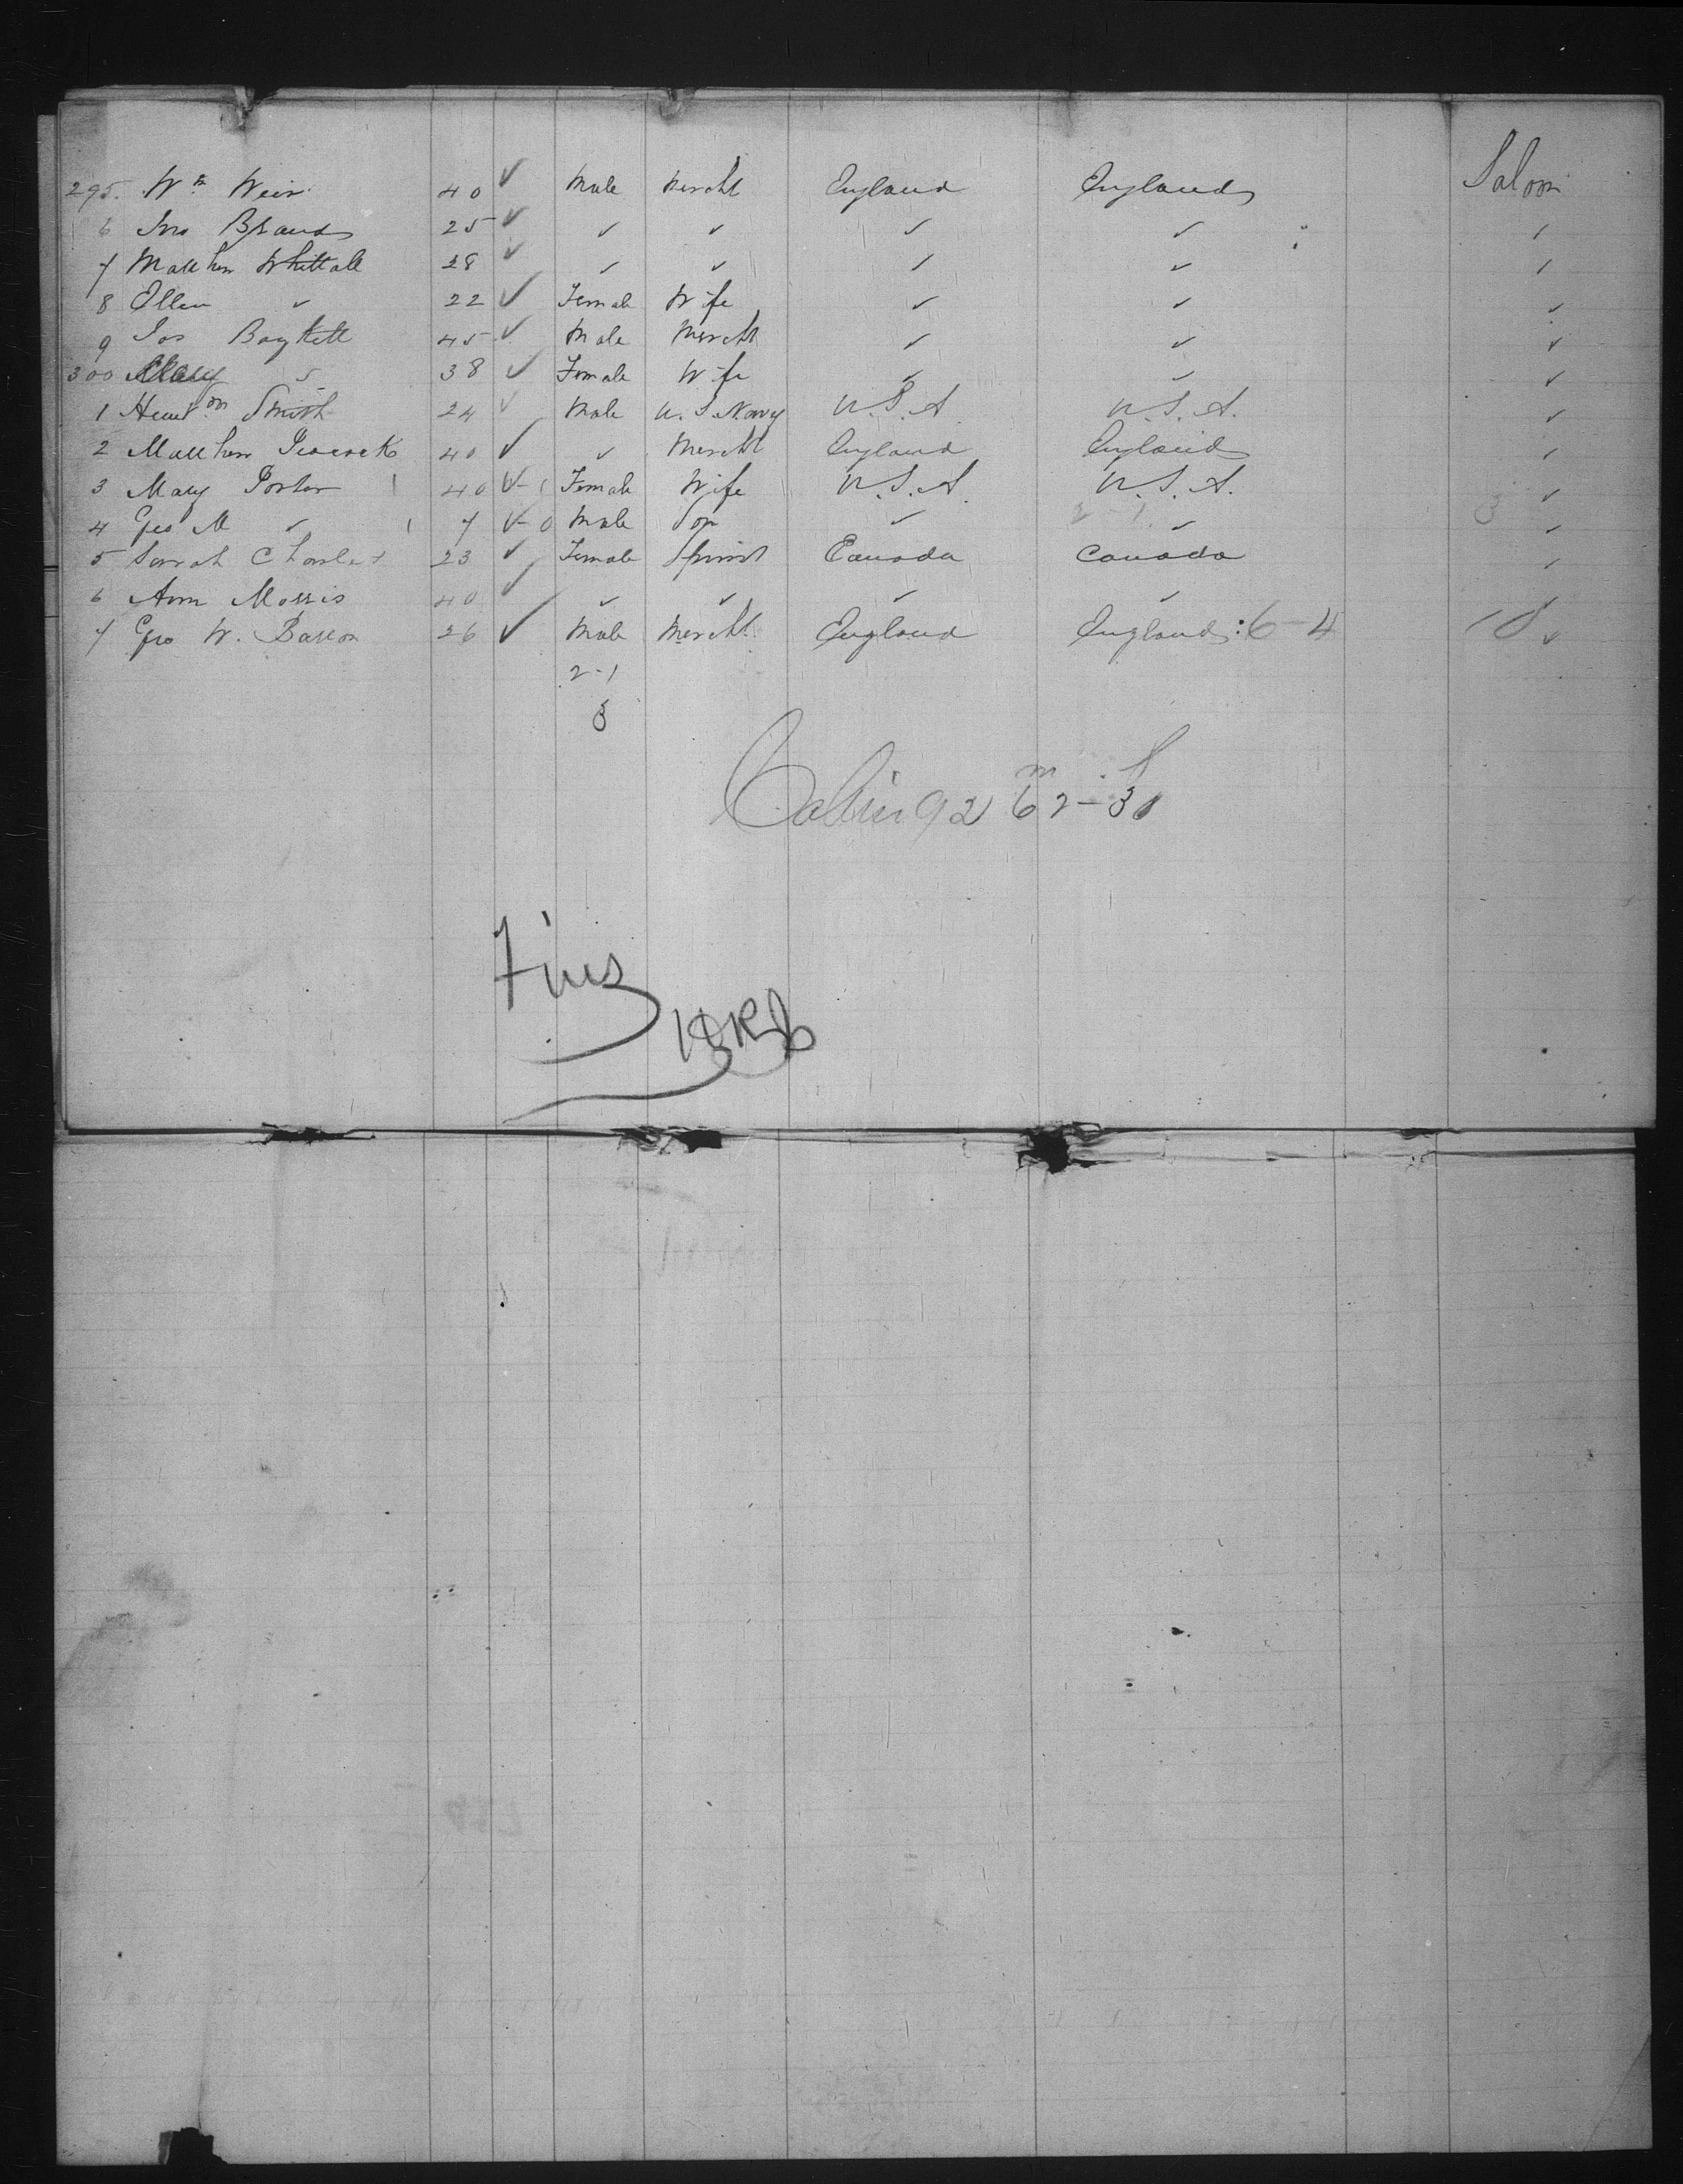 295. Wm Weir 40 ✓ Male Mercht England England Saloon
6 Jno Brand 25 ✓ ✓ ✓ ✓ ✓ ✓
7 Matthew Whittall 28 ✓ ✓ ✓ ✓ ✓ ✓
8 Ellen ✓ 22 ✓ Female Wife ✓ ✓ ✓
9 Jos 45 ✓ Male Mercht ✓ ✓ ✓
300 Mary 38 ✓ Female Wife ✓ ✓ ✓
1 Smith 24 ✓ Male U.S Navy U.S.A U.S.A. ✓
2 Matthew Peacock 40 ✓ ✓ Mercht England England ✓
3 Mary Porter 1 40 ✓-1 Female Wife U.S.A. U.S.A. ✓
4 Geo M ✓ 1 7 ✓-0 Male Son ✓ 2-1 ✓ 3 ✓
5 Sarah 23 ✓ Female Spinst Canada Canada ✓
6 Ann Morris 40 ✓ ✓ ✓ ✓ ✓
7 Geo W. 26 ✓ Male Mercht England England 6-4 10 ✓
2-1
3
Cabin 92 m 62-30
Finis